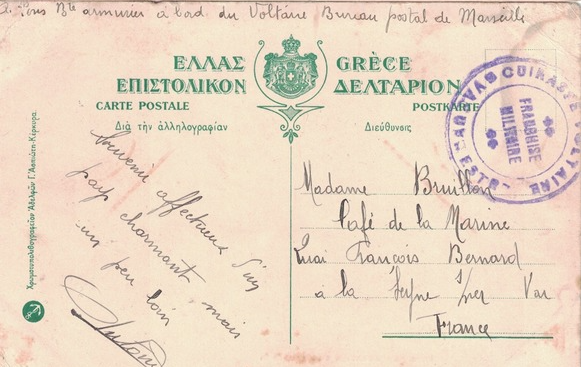 armurier à bord du Voltaire Bureau postal de Marseille
ΕΛΛΑΣ GRÈCE
ΕΠΙΣΤΟΛΙΚΟΝ ΔΕΛΤΑΡΙΟΝ
CARTE POSTALE POSTKARTE
Διὰ τὴν ἀλληλογραφίαν Διεύθυνσις
CUIRASSÉ VOLTAIRE
FRANCHISE
MILITAIRE
souvenir affectueux d'un
pays charmant, mais
un peu loin
Madame Brullon
Café de la Marine
Quai François Bernard
à la Seyne s/mer Var
France
Χρωμοτυπολιθογραφεῖον Ἀδελφῶν Γ. Ἀσπιώτη-Κέρκυρα.